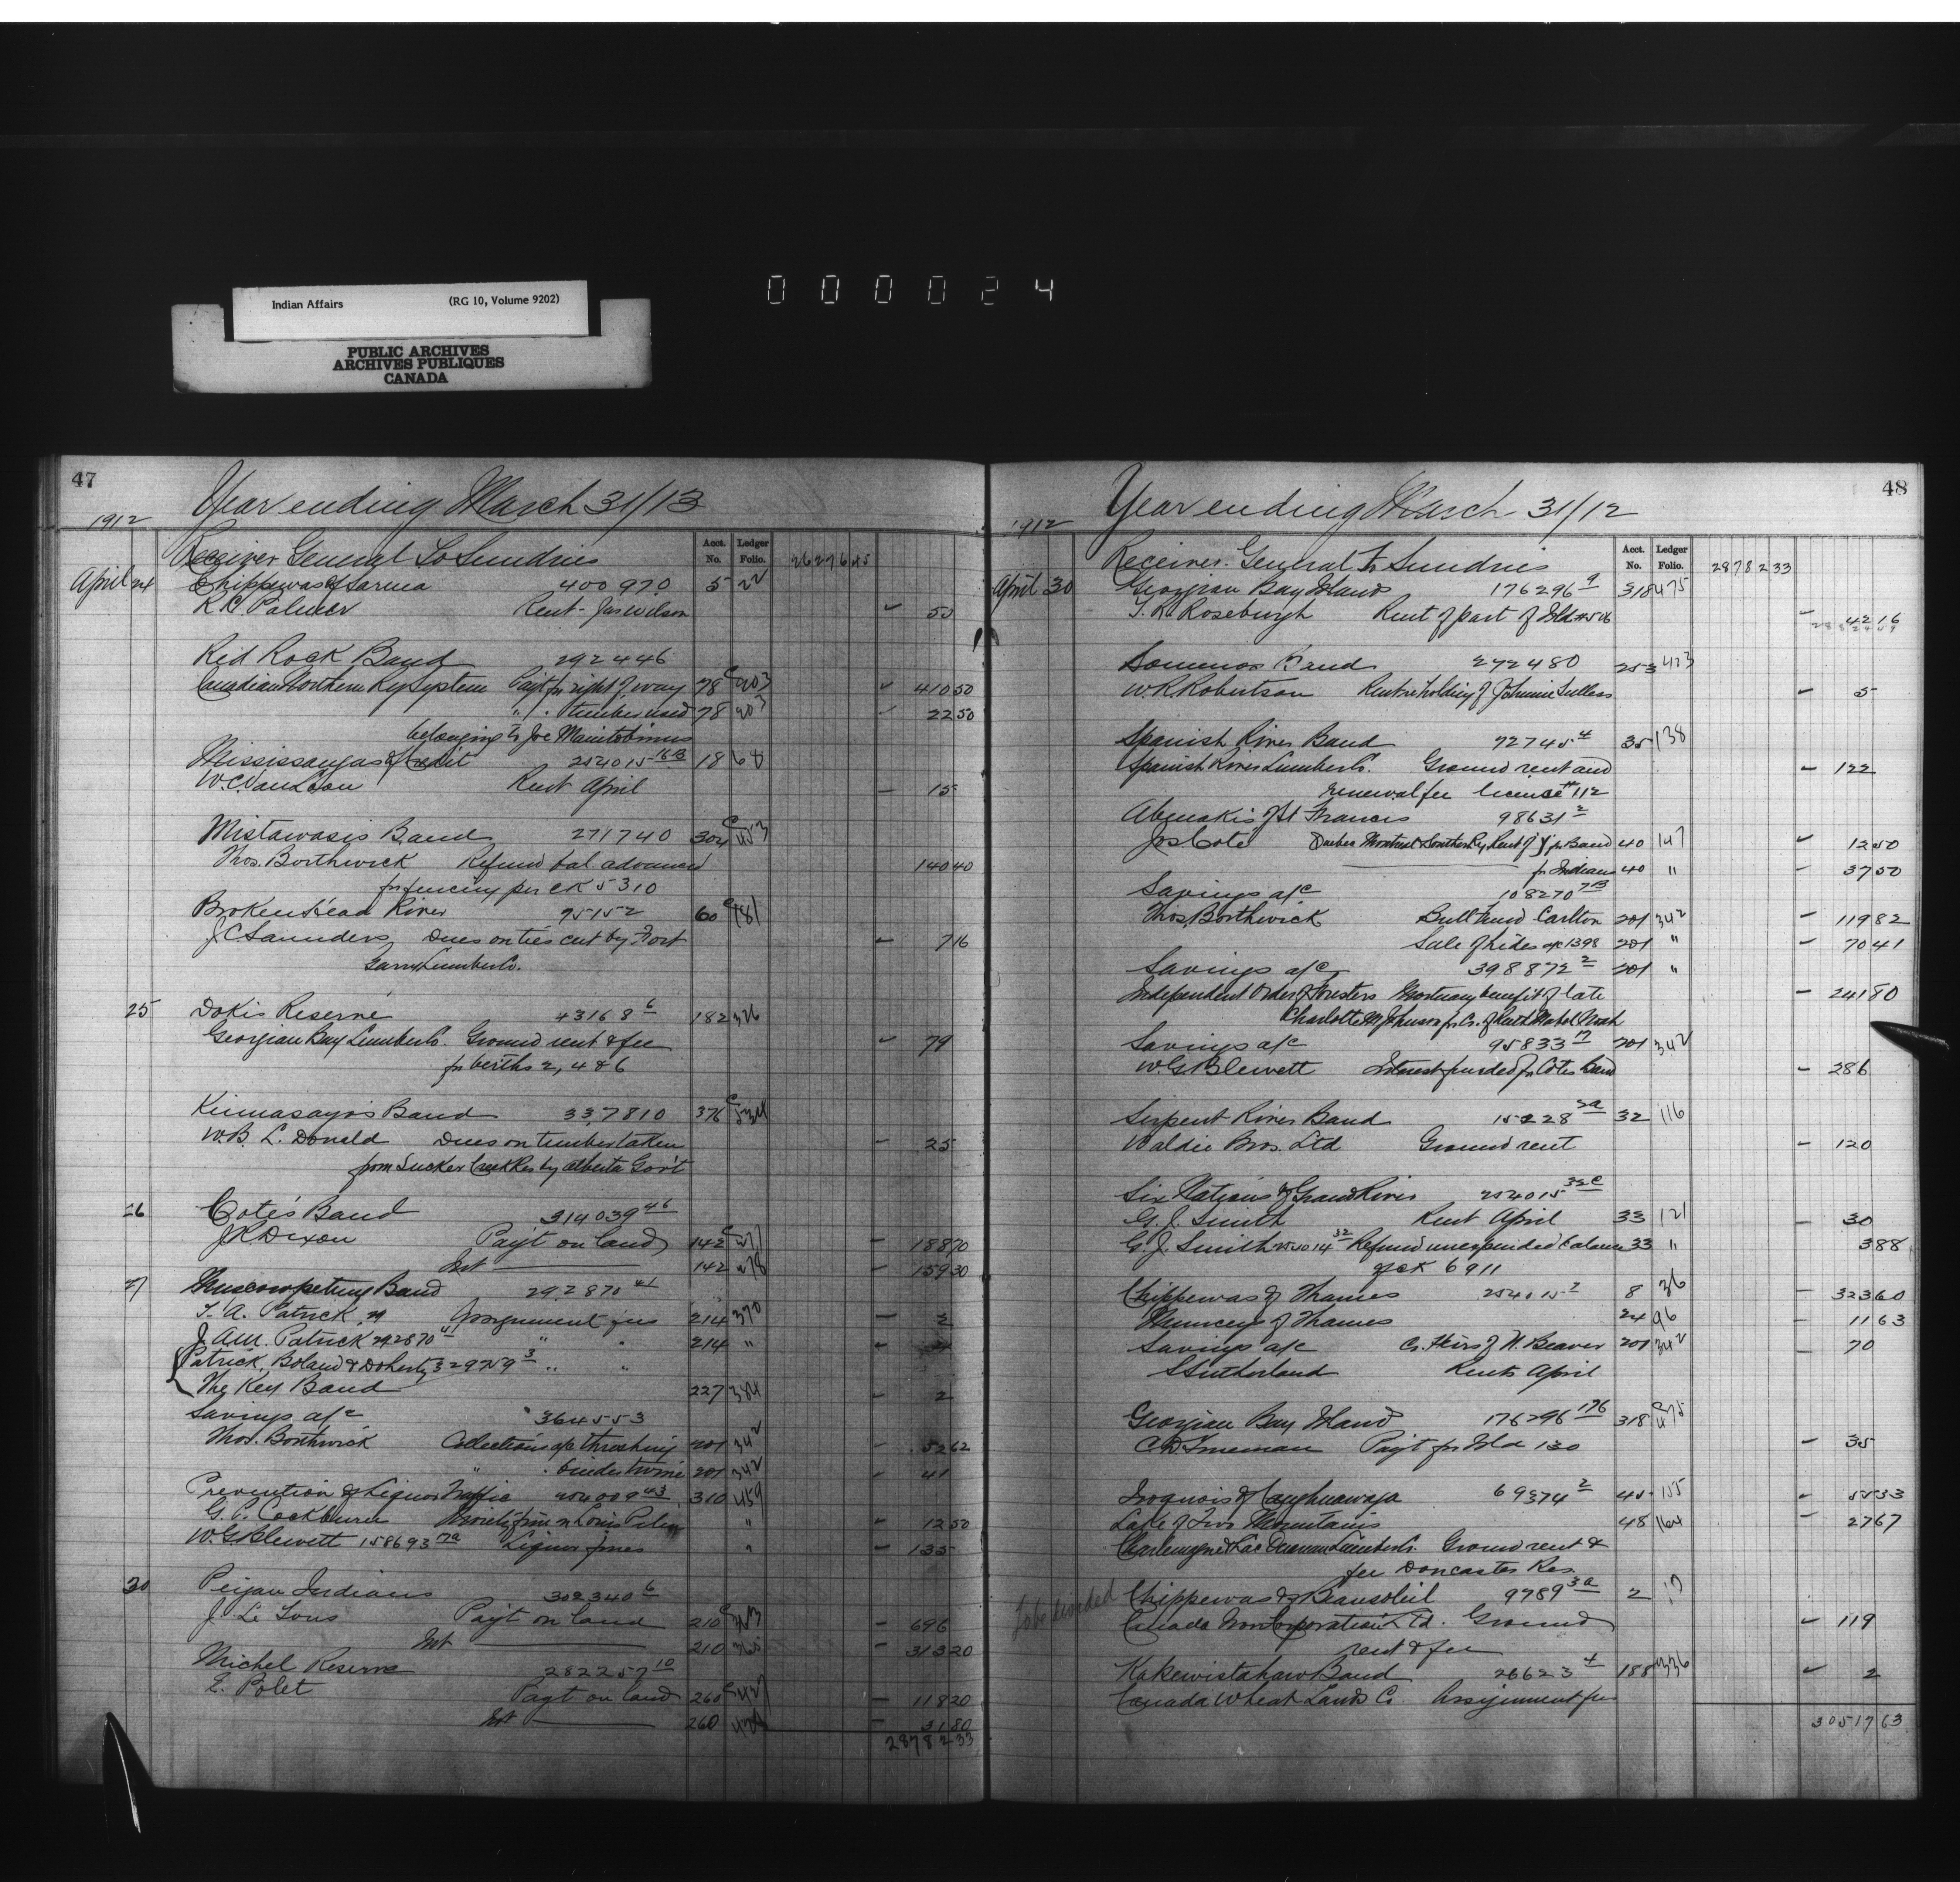 Indian Affairs (RG 10, Volume 9202)
PUBLIC ARCHIVES
ARCHIVES PUBLIQUES
CANADA
000024
47
Year ending March 31/13
1912
Acct. No. Ledger Folio.
Receiver General To Sundries 26276 45
April 24 Chippewas of Sarnia 400970 5 22
R.C. Palmer Rent - Jas Wilson 50
Red Rock Band 292446
Canadian Northern Ry System Payt for right of way 78 410 50
" " timber used 78 22 50
belonging to Joe Manitobinus
Mississaugas of Credit 254015 16B 18 68
W.C. Van Loon Rent April 15
Mistawasis Band 271740 304 453
Thos. Borthwick Refund bal. advanced 140 40
for fencing per CK 5310
Brokenhead River 95152 60 181
J C Saunders Dues on ties cut by Fort 7 16
Garry Lumber Co.
25 Dokis Reserve 43168 6 182 326
Georgian Bay Lumber Co. Ground rent & fee 79
for berths 2, 4 & 6
Kinnasayo's Band 337810 376 534
W.B. L. Donald Dues on timber taken 25
from Sucker Creek Res by Alberta Gov't
26 Cote's Band 314039 46
J.K. Dixon Payt on land 142 277 188 70
Int 142 278 159 30
27 Muscowpetung Band 292870 41
T. A. Patrick Assignment fees 214 370 2
J. A.M. Patrick 292870 41 " " 214 " 2
Patrick, Boland & Doherty 329259 3 " "
The Key Band 227 384 2
Savings a/c 364553
Thos. Borthwick Collections a/c threshing 201 342 52 62
" " binder twine 201 342 41
Prevention of Liquor Traffic 254009 43 310 459
G. P. Cockburn Moiety fine " 12 50
W.G Blewett 158693 17a Liquor fines " 135
30 Peigan Indians 302340 6
J. Le Tous Payt on land 210 696
Int 210 365 313 20
Michel Reserve 282257 10
E. Polet Payt on land 260 118 20
Int 260 31 80
28782 33
48
Year ending March 31/12
1912
Acct. No. Ledger Folio.
Receiver General To Sundries 28782 33
April 30 Georgian Bay Islands 176296 9 318 475
T. R. Roseburgh Rent of part of Isld #506 42 16
Somenos Band 272480 253 423
W.R. Robertson Rent re holding of Johnnie 5
Spanish River Band 72745 4 35 138
Spanish River Lumber Co. Ground rent and 122
renewal fee license #112
Abenakis of St Francis 98631 2
Jos Cote Quebec Montreal & Southern Ry Rent of for Band 40 147 12 50
for Indians 40 " 37 50
Savings a/c 108270 7B
Thos. Borthwick Bull Fund Carlton 201 342 119 82
Sale of hides a/c 1398 201 " 70 41
Savings a/c 398872 2 201 "
Independent Order of Foresters Mortuary benefit of late 241 80
Charlotte M Johnson for Cr. of Ruth Mabel Nash
Savings a/c 95833 17 201 342
W.G Blewett Interest funded for Cotes Band 286
Serpent River Band 15228 2a 32 116
Waldie Bros. Ltd Ground rent 120
Six Nations of Grand River 254015 32C
G. J. Smith Rent April 33 121 30
G. J. Smith 255014 32 Refund unexpended balance 33 " 3 88
of CK 6911
Chippewas of Thames 254015 2 8 36 323 60
Munceys of Thames 24 96 11 63
Savings a/c Cr. Heirs of N. Beaver 201 342 70
S Sutherland Rents April
Georgian Bay Island 176296 176 318 475
C.D. Freeman Payt for Isld 130 35
Iroquois of Caughnawaga 69374 2 45 155 55 33
Lake of Two Mountains 48 164 27 67
Charlemagne & Lac Ouareau Lumber Co. Ground rent &
fee Doncaster Res.
To be divided Chippewas of Beausoleil 9789 3a 2 17
Canada Iron Corporation Ltd. Ground 119
rent & fee
Kakewistahaw Band 26623 4 188 336 2
Canada Wheat Lands Co. Assignment fee
30517 63